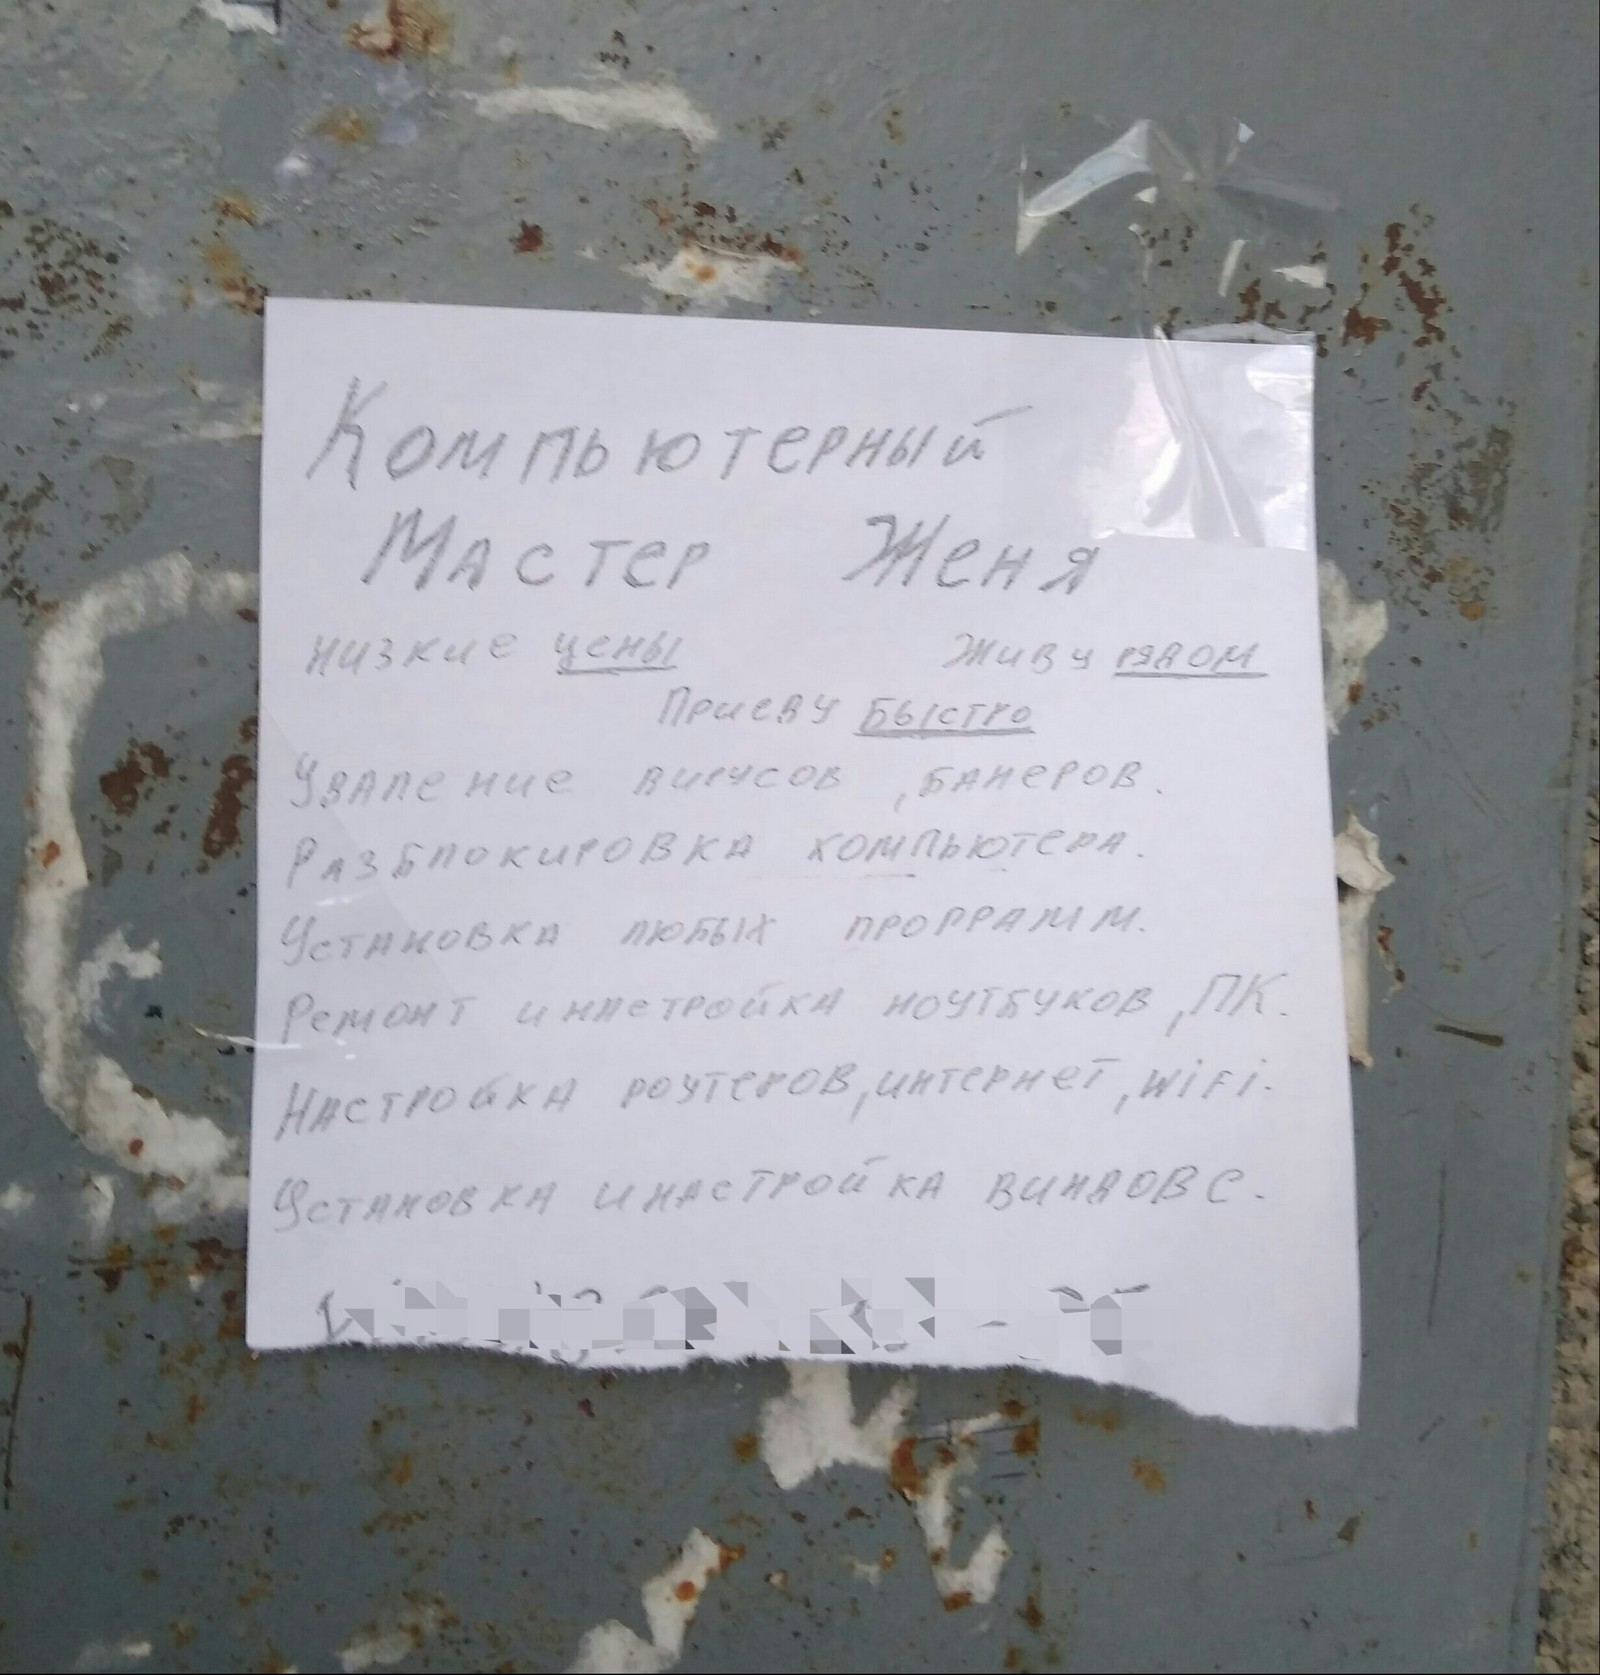 Компьютерный
Мастер Женя
низкие цены Живу рядом
Приеду Быстро
Удаление вирусов, банеров.
Разблокировка компьютера.
Установка любых программ.
Ремонт и настройка ноутбуков, ПК.
Настройка роутеров, интернет, wifi.
Установка и настройка виндовс.